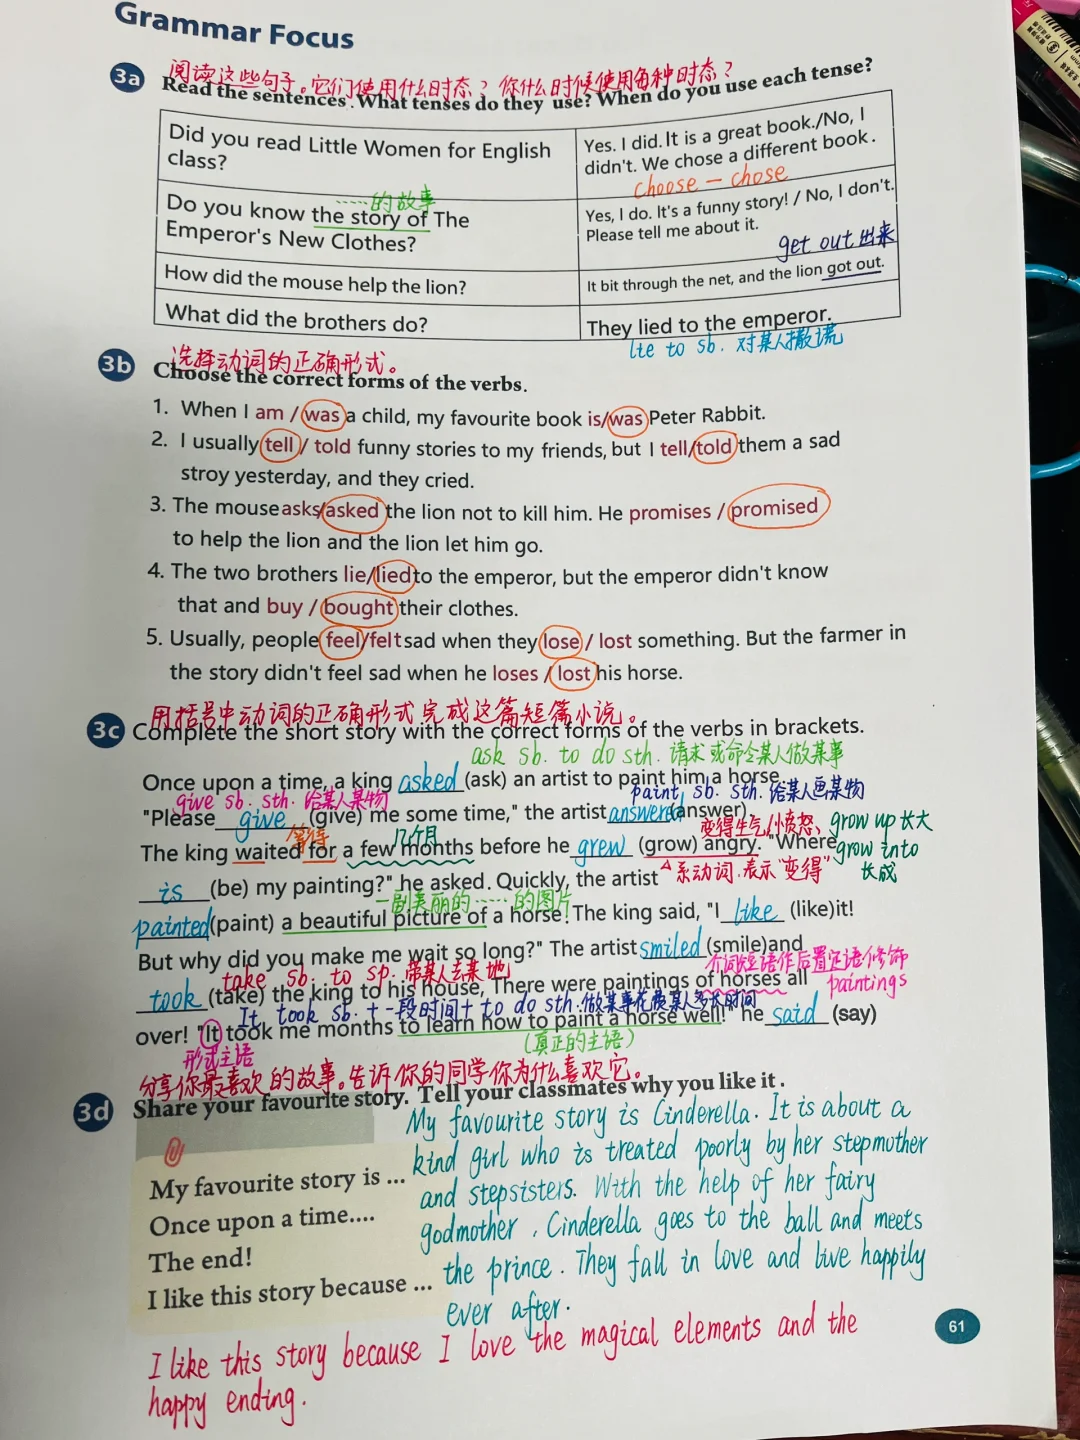 Grammar Focus
阅读这些句子。它们使用什么时态？你什么时候使用每种时态？
3a Read the sentences. What tenses do they use? When do you use each tense?
Did you read Little Women for English
class?
Yes. I did. It is a great book./No, I
didn't. We chose a different book.
choose – chose
……的故事
Do you know the story of The
Emperor's New Clothes?
Yes, I do. It's a funny story! / No, I don't.
Please tell me about it.
get out 出来
How did the mouse help the lion?
It bit through the net, and the lion got out.
What did the brothers do?
They lied to the emperor.
lie to sb. 对某人撒谎
选择动词的正确形式。
3b Choose the correct forms of the verbs.
1. When I am / was a child, my favourite book is/was Peter Rabbit.
2. I usually tell / told funny stories to my friends, but I tell/told them a sad
stroy yesterday, and they cried.
3. The mouse asks/asked the lion not to kill him. He promises / promised
to help the lion and the lion let him go.
4. The two brothers lie/lied to the emperor, but the emperor didn't know
that and buy / bought their clothes.
5. Usually, people feel/felt sad when they lose / lost something. But the farmer in
the story didn't feel sad when he loses / lost his horse.
用括号中动词的正确形式完成这篇短篇小说。
3c Complete the short story with the correct forms of the verbs in brackets.
ask sb. to do sth. 请求或命令某人做某事
Once upon a time, a king asked (ask) an artist to paint him a horse.
give sb. sth. 给某人某物
paint sb. sth. 给某人画某物
"Please give (give) me some time," the artist answered (answer).
等待
几个月
变得生气/愤怒、grow up 长大
The king waited for a few months before he grew (grow) angry. "Where
grow into
长成
系动词.表示"变得"
is (be) my painting?" he asked. Quickly, the artist
一副美丽的……的图片
painted (paint) a beautiful picture of a horse. The king said, "I like (like)it!
But why did you make me wait so long?" The artist smiled (smile)and
take sb. to sp. 带某人去某地
介词短语作后置定语修饰
paintings
took (take) the king to his house, There were paintings of horses all
It took sb. + 一段时间 + to do sth. 做某事花费某人多长时间
over! "It took me months to learn how to paint a horse well!" he said (say)
形式主语
(真正的主语)
分享你最喜欢的故事。告诉你的同学你为什么喜欢它。
3d Share your favourite story. Tell your classmates why you like it.
My favourite story is ...
Once upon a time....
The end!
I like this story because ...
My favourite story is Cinderella. It is about a
kind girl who is treated poorly by her stepmother
and stepsisters. With the help of her fairy
godmother, Cinderella goes to the ball and meets
the prince. They fall in love and live happily
ever after.
I like this story because I love the magical elements and the
happy ending.
61